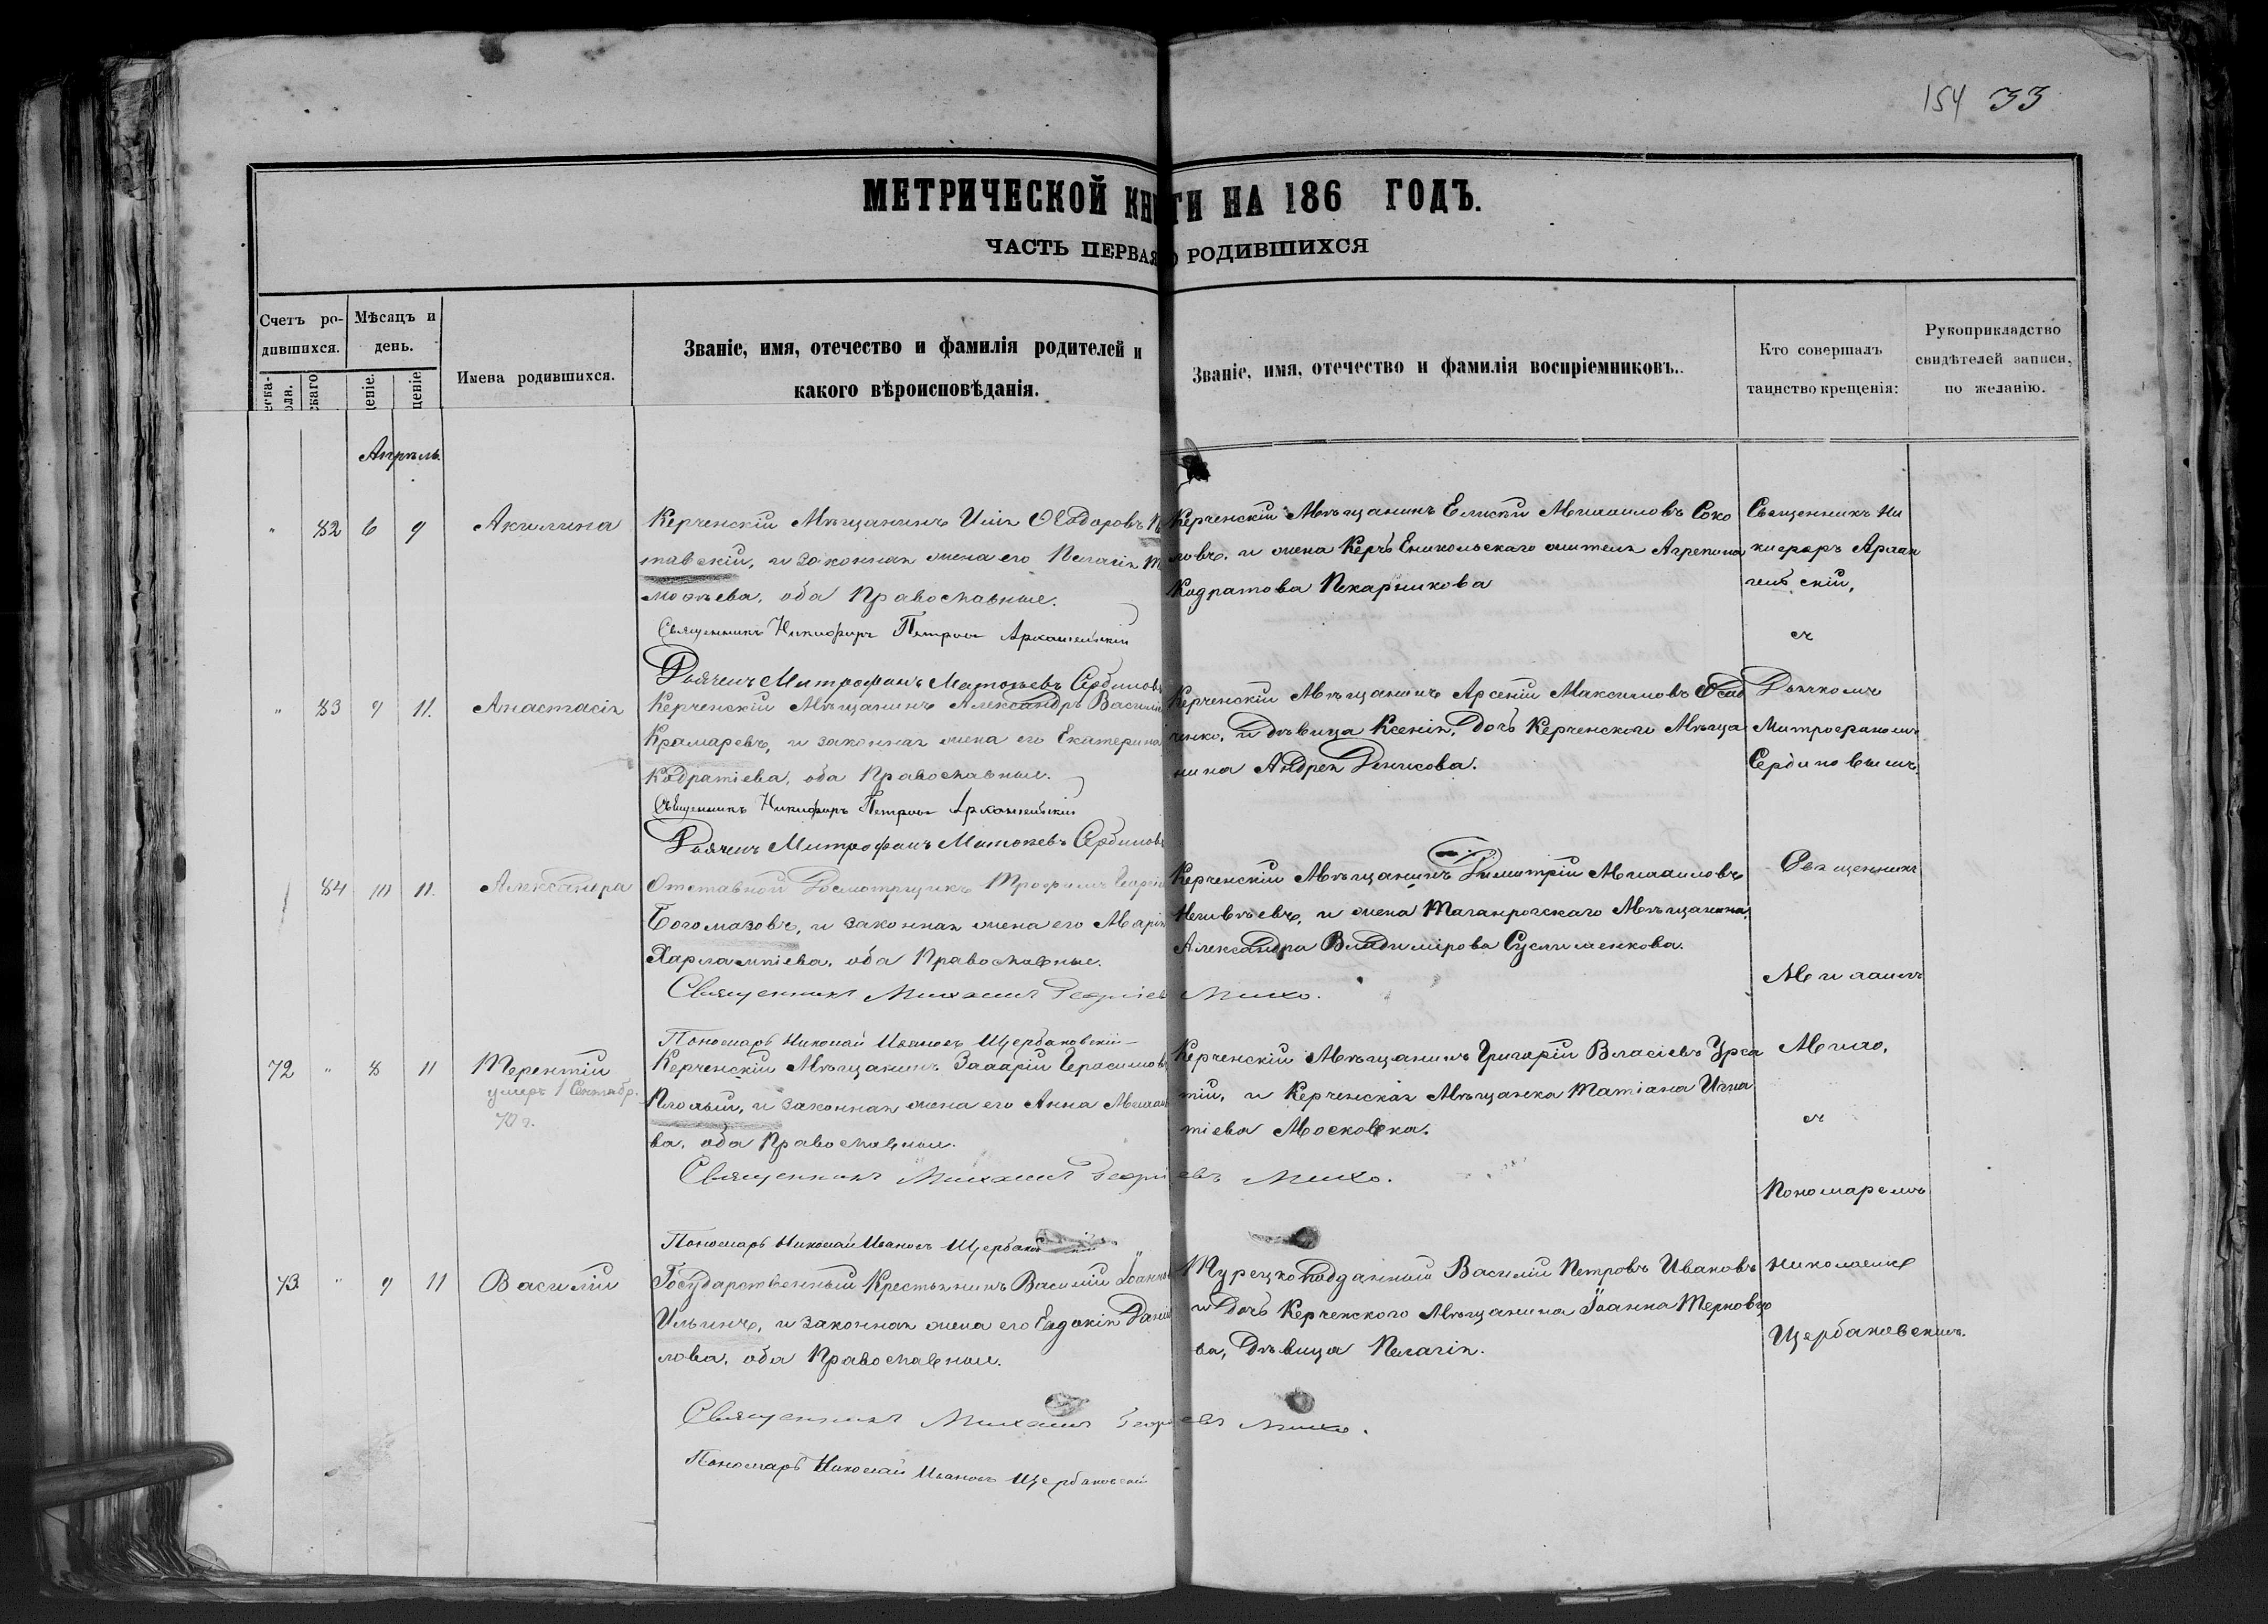 154 33
МЕТРИЧЕСКОЙ КНИГИ НА 186 ГОДЪ.
ЧАСТЬ ПЕРВАЯ О РОДИВШИХСЯ
Счетъ ро-
дившихся.
Мѣсяцъ и
день.
Имена родившихся.
Званіе, имя, отечество и фамилія родителей и
какого вѣроисповѣданія.
Званіе, имя, отечество и фамилія воспріемниковъ..
Кто совершалъ
таинство крещенія:
Рукоприкладство
свидѣтелей записи,
по желанію.
Апрѣль.
" 82 6 9 Акилина
Керченскій Мѣщанинъ Илія Ѳеодоровъ
тавскій, и законная жена его Пелагія
моѳѣева, оба Православные.
Священникъ Никифоръ Петровъ Архангельскій
Дьячекъ Митрофанъ Матѳѣевъ Сербиновъ
Керченскій Мѣщанинъ Елисѣй Михаиловъ Соко
ловъ, и жена Керчь Еникольскаго жителя Агрепина
Кодратова Пекарникова
Священникъ Ни
кифоръ Архан
гельскій,
съ
" 83 9 11. Анастасія
Керченскій Мѣщанинъ Александръ Василі
Крамаревъ, и законная жена его Екатерина
Кодратіева, оба Православные.
Священникъ Никифоръ Петровъ Архангельскій
Дьячекъ Митрофанъ Матѳѣевъ Сербиновъ
Керченскій Мѣщанинъ Арсеній Максимовъ
ченко, и дѣвица Ксенія, Дочь Керченского Мѣща
нина Андрея Денисова.
Дьячкомъ
Митрофаномъ
Сербиновымъ.
84 10 11. Александра
Отставной Досмотрщикъ Трофимъ
Богомазовъ, и законная жена его Марія
Харлампіева, оба Православные.
Священникъ Михаилъ Георгіевъ Михо.
Пономарь Николай Ивановъ Щербаковскій
Керченскій Мѣщанинъ Димитрій Михаиловъ
и жена Таганрогскаго Мѣщанина
Александра Владимірова
Священникъ
Михаилъ
72 " 8 11 Терентій
умеръ 1 Сентябр.
70 г.
Керченскій Мѣщанинъ Захарій Герасимовъ
и законная жена его Анна Михаило
ва, оба Православные.
Священникъ Михаилъ Георгіевъ Михо.
Пономарь Николай Ивановъ Щербаковскій
Керченскій Мѣщанинъ Григорій Власіевъ Урса
тій, и Керченская Мѣщанка Татіана Игна
тіева Московка.
Михо,
съ
Пономаремъ
73 " 9 11 Василій
Государственный Крестьянинъ Василій Іоанновъ
Ильинъ, и законная жена его Евдокія Дании
лова, оба Православные.
Священникъ Михаилъ Георгіевъ Михо.
Пономарь Николай Ивановъ Щербаковскій
Турецко подданный Василій Петровъ Ивановъ
и Дочь Керченского Мѣщанина Іоанна Терново
ва, Дѣвица Пелагія.
Николаемъ
Щербаковскимъ.